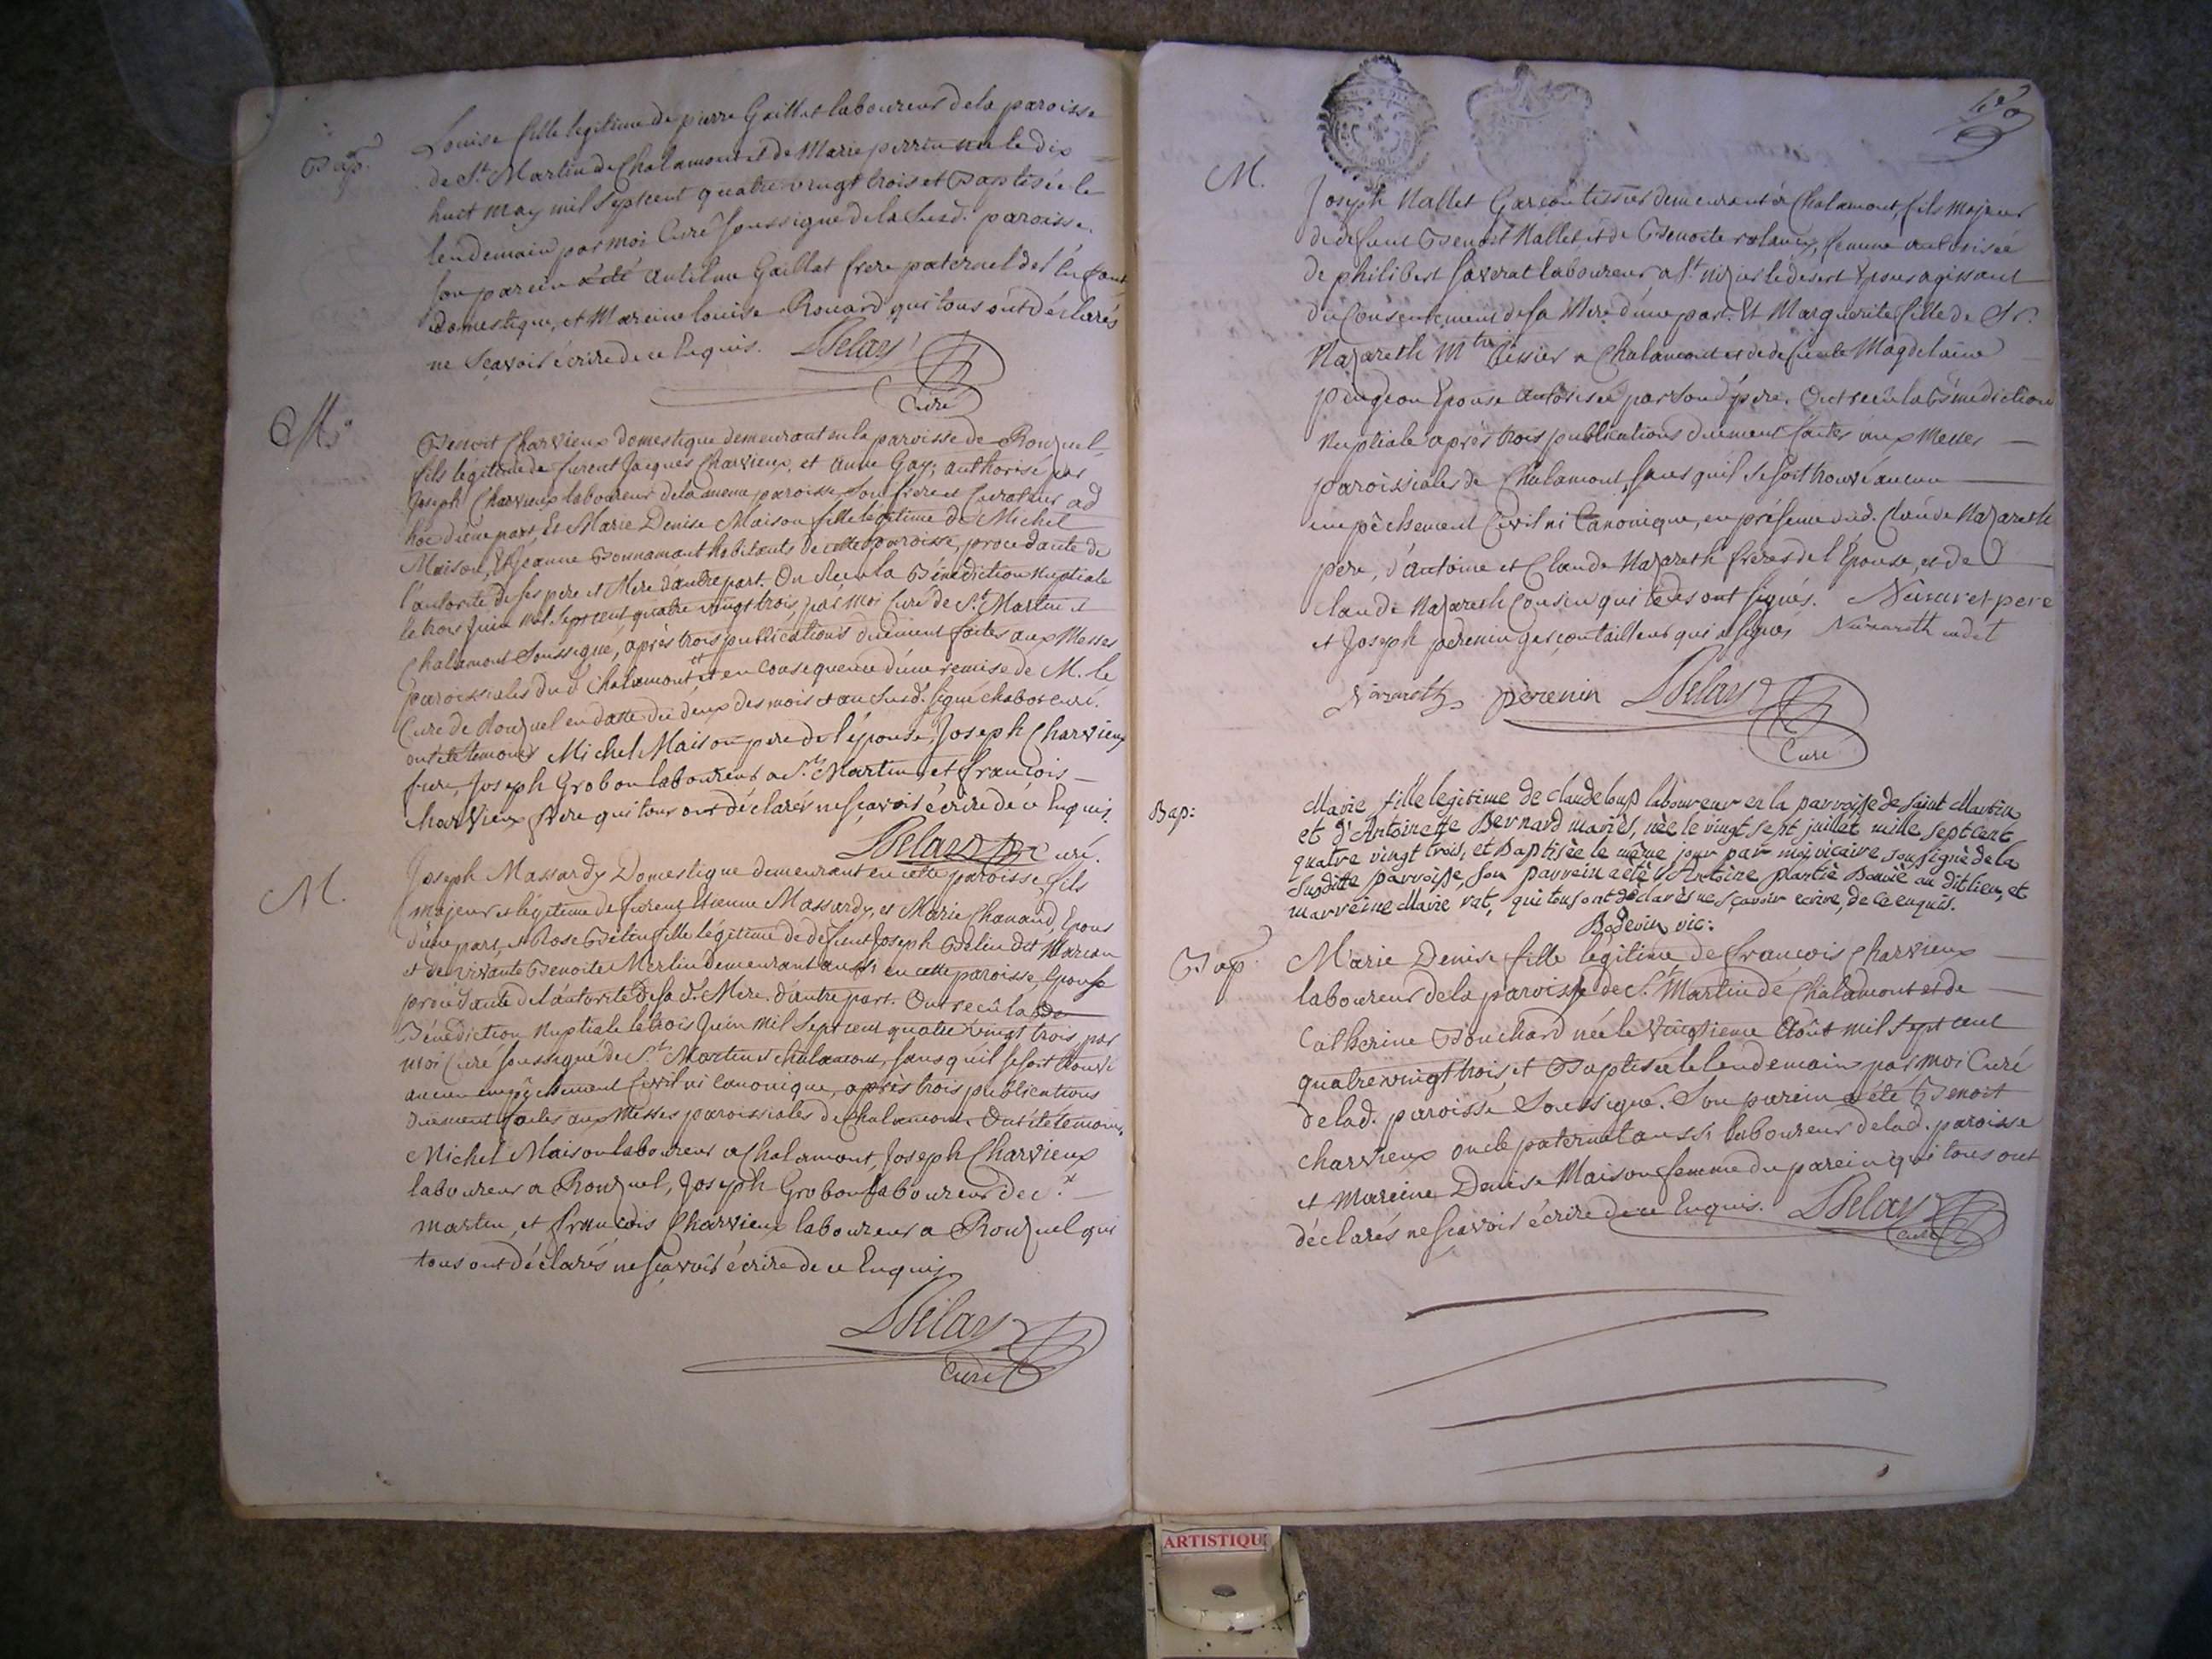 Bap.
Louise fille legitime de pierre Gaillat laboureur de la paroisse
de St. Martin de Chalamont et de Marie perrin née le dix
huit may mil sept cent quatre vingt trois et Baptisée le
lendemain par moi Curé soussigné de la susd. paroisse.
son parein a été Antelme Gaillat frere paternel de l'enfant
domestique, et Mareine louise Rouard qui tous ont déclarés
ne scavoir écrire de ce Enquis. Delay
Curé
M.
Benoit Charvieux domestique demeurant en la paroisse de Ronzuel,
fils legitime de furent Jacques Charvieux, et Anne Gay; authorisé par
Joseph Charvieux laboureur de la meme paroisse, son frere et Curateur ad
hoc d'une part, Et Marie Denise Maison fille legitime de Michel
Maison, Et Jeanne Bonnamant habitants de cette paroisse, procedante de
l'autorité de ses pere et Mere d'autre part. On Reçu la Bénédiction Nuptiale
le trois Juin mil sept cent quatre vingt trois, par moi Curé de St. Martin et
Chalamont soussigné, après trois publications duement faites aux Messes
paroissiales dud. Chalamont et en consequence d'une remise de M. le
Curé de Ronzuel en datte du deux des mois et an susd. signé chabot curé.
ont été temoins Michel Maison pere de l'épouse, Joseph Charvieux
frere, Joseph Grobon laboureur a St. Martin, et francois
charvieux frere qui tous ont déclarés ne scavoir écrire de ce Enquis.
Delay Curé.
M.
Joseph Massardy Domestique demeurant en cette paroisse, fils
majeur et légitime de furent Etienne Massardy, et Marie Chanaud, Epoux
d'une part, et Rose Belin fille légitime de défunt Joseph Belin dit Marian
et de vivante Benoite Merlin demeurant aussi en cette paroisse, Epouse
procédante de l'autorité de sa d. Mere. d'autre part. Ont recû la
Bénédiction Nuptiale le trois Juin mil sept cent quatre vingt trois par
moi Curé soussigné de St. Martin et chalamont, sans qu'il se soit trouvé
aucun empêchement Civil ni Canonique, après trois publications
duement faites aux Messes paroissiales de Chalamont. Ont été témoins,
Michel Maison laboureur a Chalamont, Joseph Charvieux
laboureur a Ronzuel, Joseph Grobon laboureur de St.
martin, et francois Charvieux laboureur a Ronzuel qui
tous ont déclarés ne scavoir écrire de ce Enquis.
Delay
Curé
M.
Joseph Nallet Garcon tissier demeurant à Chalamont, fils majeur
de defunt Benoit Nallet et de Benoite femme autorisée
de philibert laboureur a St. nizier le desert Epoux agissant
du Consentement de sa Mere d'une part. Et Marguerite fille de Sr.
Nazareth Mtre tissier a Chalamont et de defunte Magdelaine
pugeon Epouse autorisée par son d. pere. Ont recû la Bénédiction
Nuptiale après trois publications duement faites aux Messes
paroissiales de Chalamont, sans qu'il se soit trouvé aucun
empêchement Civil ni Canonique, en présence dud. Claude Nazareth
pere, d'antoine et Claude Nazareth freres de l'Epouse, et de
claude Nazareth Cousin, qui tous ont signés. Nazaret pere
et Joseph perenin Garcon tailleur qui a signés Nazareth cadet
Nazareth perenin Delay
Curé
Bap:
Marie fille legitime de claude loup laboureur en la parroisse de saint Martin
et d'Antoinette Bernard mariés, née le vingt sept juillet mille sept cent
quatre vingt trois, et Baptisée le même jour par moi vicaire soussigné de la
susditte parroisse, son parrein a été Antoine plantié au dit lieu, et
marreine Marie rat, qui tous ont déclarés ne sçavoir ecrire, de ce enquis.
Bodevin vic:
Bap.
Marie Denise fille legitime de francois Charvieux
laboureur de la paroisse de St. Martin de Chalamont et de
Catherine Bouchard née le vingtieme Août mil sept cent
quatre vingt trois, et Baptisée le lendemain par moi Curé
de lad. paroisse soussigné. Son parein a été Benoit
charvieux oncle paternel aussi laboureur de lad. paroisse
et Mareine Denise Maison femme du parein qui tous ont
déclarés ne scavoir écrire de ce Enquis. Delay
Curé
ARTISTIQU